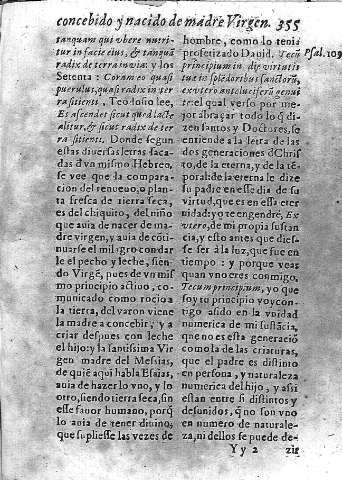 concebido y nacido de madre Virgen. 355
tanquam qui vbere nutri-
tur in facie eius, & tanquã
radix de terra inuia: y los
Setenta: Coram eo quasi
puerulus, quasi radix in ter
ra sitienti. Teodosio lee,
Es ascendet sicut quod lacte
alitur, & sicut radix de ter
ra sitienti. Donde segun
estas diuersas letras saca-
das d'vn mismo Hebreo,
se vee que la compara-
cion del renueuo, o plan-
ta fresca de tierra seca,
es del chiquito, del niño
que auia de nacer de ma-
dre virgen, y auia de cõti-
nuarse el milagro con dar
le el pecho y leche, sien-
do Virgẽ, pues de vn mis
mo principio actiuo, co-
municado como rocio a
la tierra, del varon viene
la madre a concebir, y a
criar despues con leche
el hijo: y la santissima Vir
gen madre del Messias,
de quiẽ aqui habla Esaias,
auia de hazer lo vno, y lo
otro, siendo tierra seca, sin
esse fauor humano, porq̃
lo auia de tener diuino,
que supliesse las vezes de
hombre, como lo tenia
profetizado Dauid. Tecũ
principium in die virtutis
tuæ in splẽdoribus sanctorũ,
ex vtero ante luciferũ genui
te: el qual verso por me-
jor abraçar todo lo q̃ di-
zen santos y Doctores, se
entiende a la letra de las
dos generaciones d'Chris
to, de la eterna, y de la tẽ-
poral: de la eterna le dize
su padre en esse dia de su
virtud, que es en essa eter
nidad: yo te engendrè, Ex
vtero, de mi propia sustan
cia, y esto antes que dies-
se ser à la luz, que fue en
tiempo: y porque veas
quan vno eres conmigo,
Tecum principium, yo que
soy tu principio voy con-
tigo asido en la vnidad
numerica de mi sustãcia,
que no es esta generaciõ
como la de las criaturas,
que el padre es distinto
en persona, y naturaleza
numerica del hijo, y assi
estan entre si distintos y
desunidos, q̃ no son vno
en numero de naturale-
za, ni dellos se puede de-
Psal. 109
Y y 2 zir